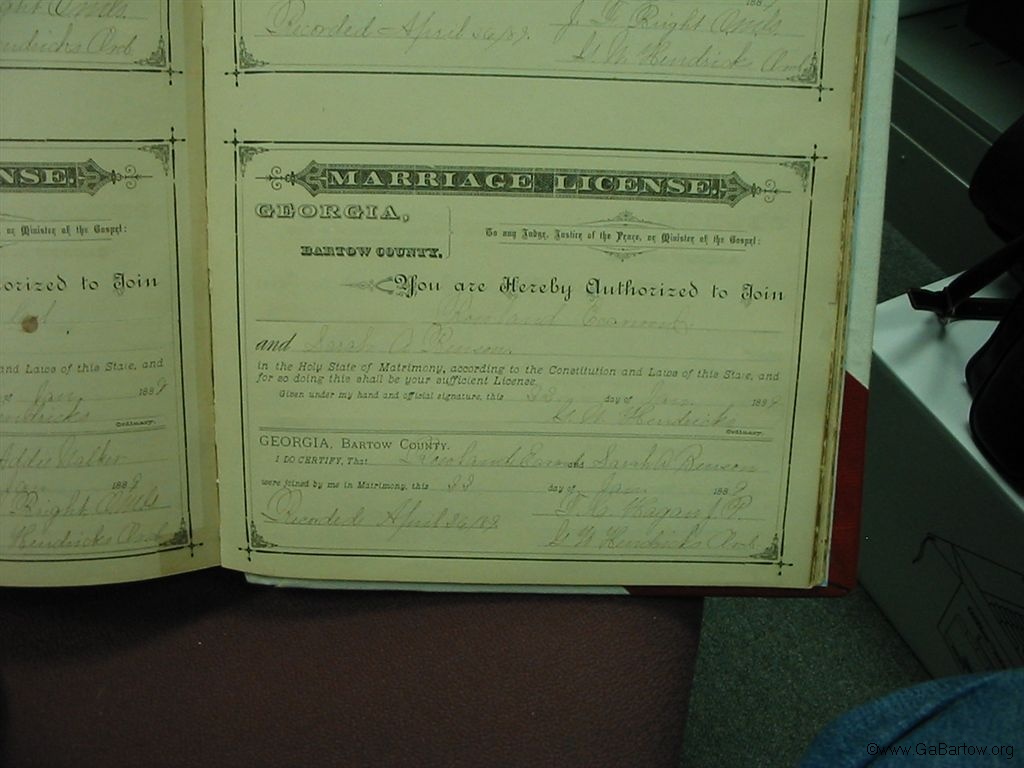 J. F. Bright OMG
Recorded April 26/89.
G. W. Hendricks Ord
Hendricks Ord
NSE.
MARRIAGE LICENSE.
GEORGIA,
BARTOW COUNTY.
To any Judge, Justice of the Peace, or Minister of the Gospel:
or Minister of the Gospel:
You are Hereby Authorized to Join
orized to Join
Rowland
and Sarah A Benson
in the Holy State of Matrimony, according to the Constitution and Laws of this State, and
for so doing this shall be your sufficient License.
and Laws of this State, and
Given under my hand and official signature, this 22 day of Jan 1889
Jan 1889
G. W. Hendricks
Ordinary.
Hendricks
Ordinary.
GEORGIA, BARTOW COUNTY.
I DO CERTIFY, That Rowland and Sarah A Benson
Addie Walker
were joined by me in Matrimony, this 23 day of Jan 1889
Jan 1889
Bright
Hagan J P
Recorded April 26/89
G. W. Hendricks Ord
Hendricks Ord
©www.GaBartow.org